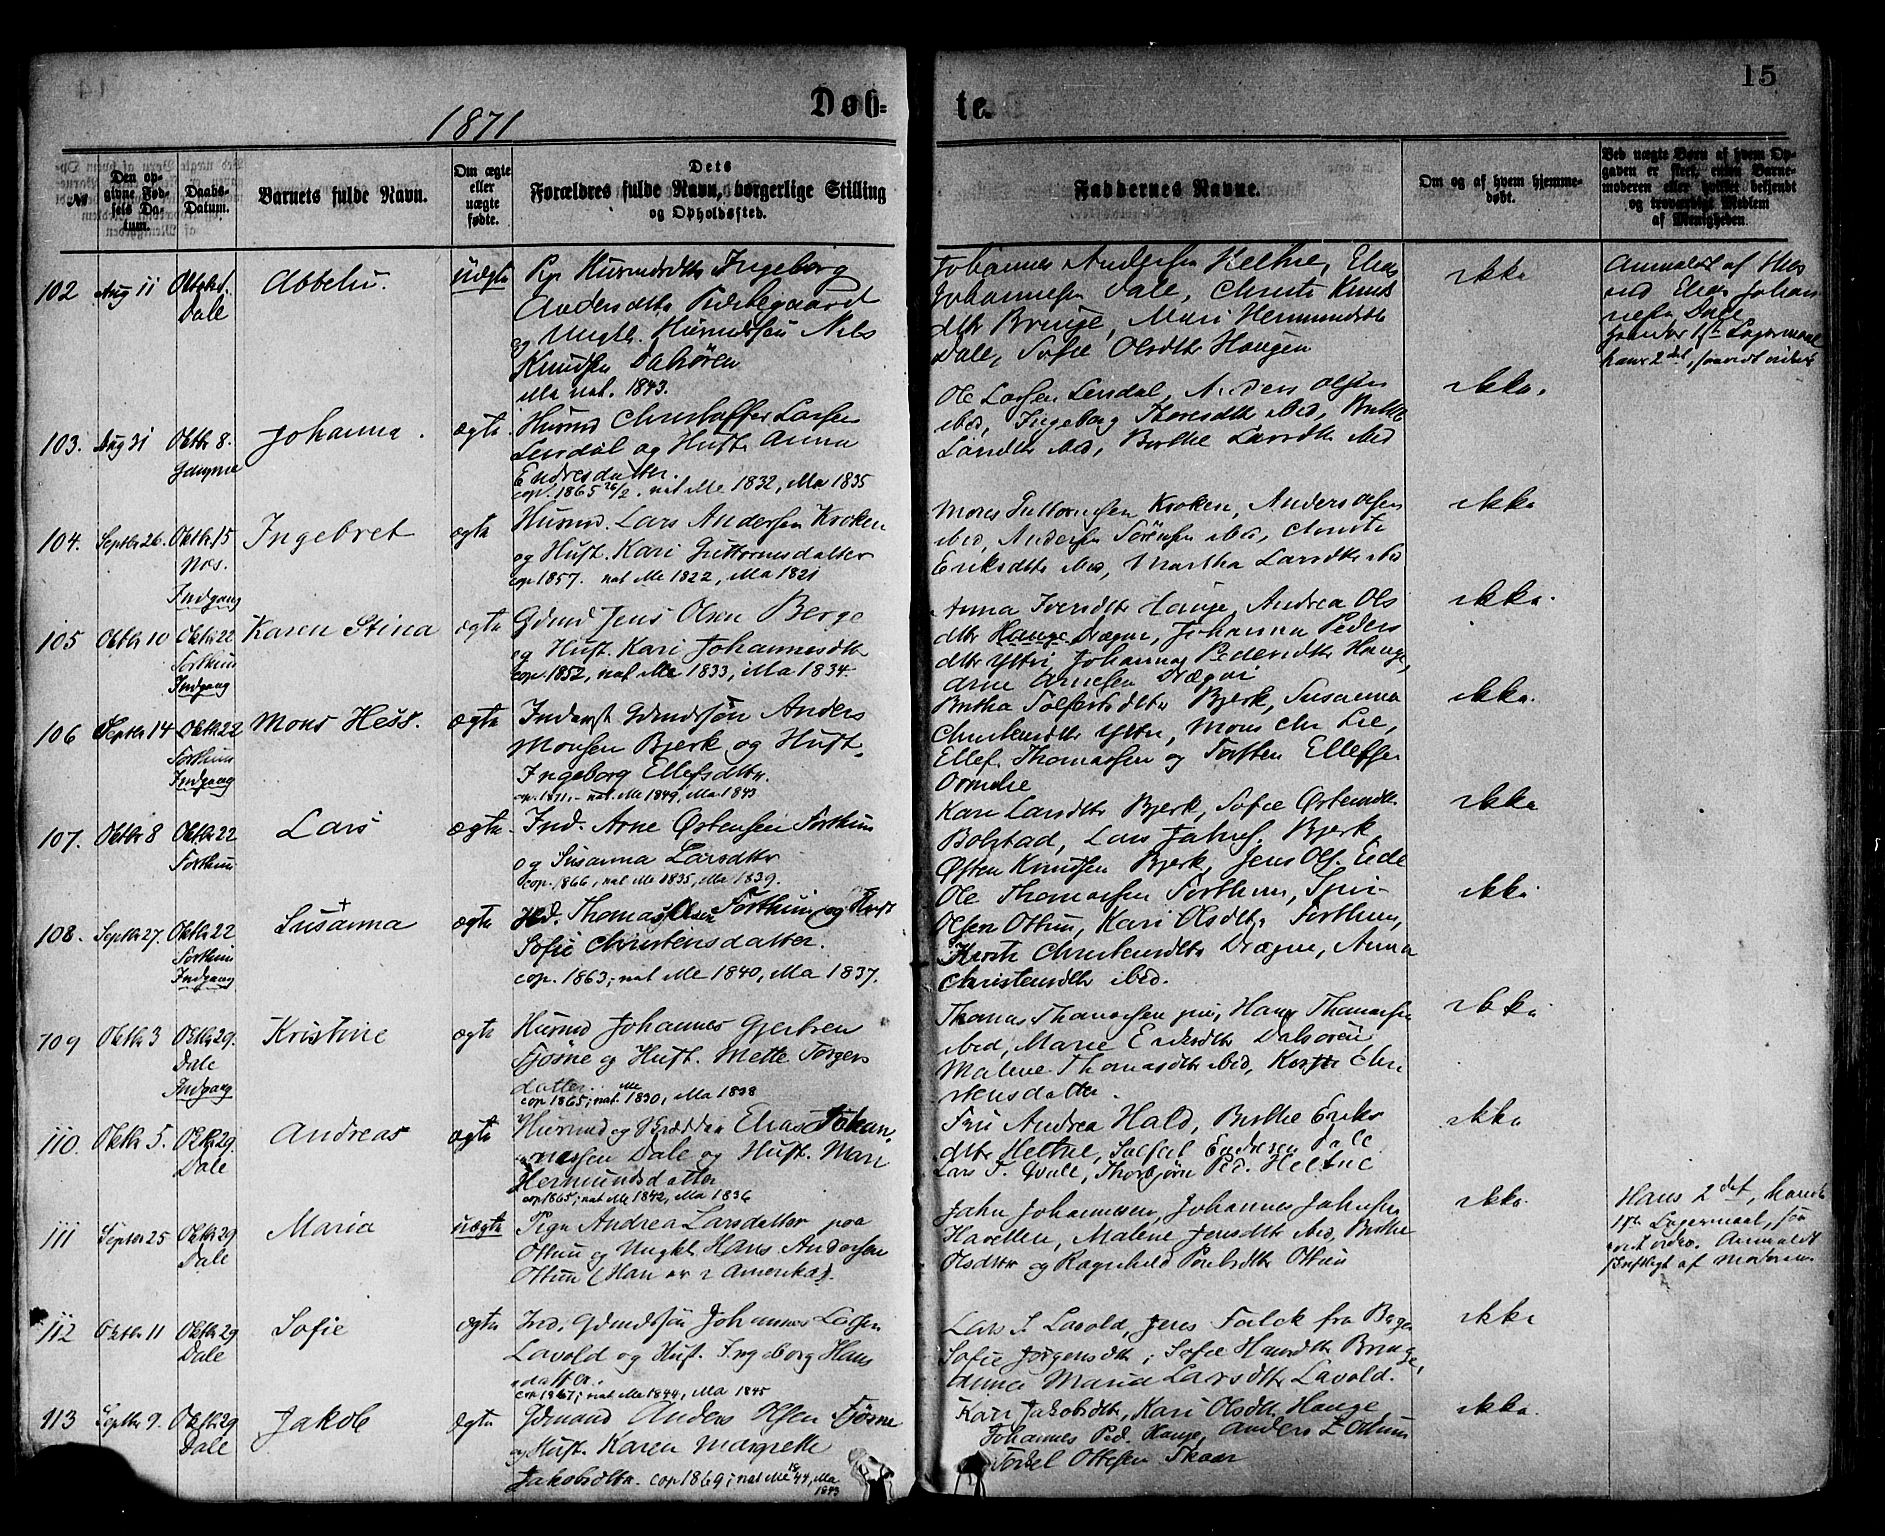 15
1871
Døb-
te.
№
Den op-
givne Fød-
sels Da-
tum.
Daabs-
Datum.
Barnets fulde Navn.
Om ægte
eller
uægte
fødte.
Dets
Forældres fulde Navn, borgerlige Stilling
og Opholdssted.
Faddernes Navne.
Om og af hvem hjemme-
døbt.
Ved uægte Børn af hvem Op-
gaven er skeet, enten Barne-
moderen eller hvilket bekjendt
og troværdigt Medlem
af Menigheden.
102 Aug 11 Oktob 1. Dale
uægte
Ingeborg
Andersdtr
og Ungk. Husmdsøn Nels
Knudsen Dahsøren
Ma nat. 1843.
Johannes Andersen Heltne, Elias
Johannesen Dale, Christi Knuds
dtr Bruge, Mari Hermundsdtr
Dale, Sofie Olsdtr Haugen
ikke
Anmeldt af
ved Elias Johan
nesen Dale
hans 2det, saavidt vides
103. Aug 31 Oktbr 8. Gaupne
Johanna.
ægte
Husmd Christoffer Larsen
Lensdal og Hust. Anna
Endresdatter.
cop. 1865 26/2. nat Me 1832, Ma 1835
Ole Larsen Lensdal, Anders Olsen
ibid, Ingeborg Thoresdtr ibid, Brithe
Larsdtr ibid, Berthe Larsdtr ibid
ikke.
104. Septbr 26. Oktbr 15 Nes.
Ingebret
ægte
Husmd. Lars Andersen Kroken
og Hust. Kari Guttormsdatter
cop 1857. nat Me 1822, Ma 1821
Mons Guttormsen Kroken, Anders Olsen
ibid, Andersen Sørensen ibid, Christi
Eriksdtr ibid, Martha Larsdtr ibid
ikke
Indgang
105 Oktbr 10 Oktbr 22 Forthun
Karen Stina
ægte
Gdmd Jens Olsen Berge
og Hust. Kari Johannesdtr
cop. 1852, nat Me 1833, Ma 1834.
Anna Iversdtr Hauge, Andrea Ols
dtr Hauge Drægne, Johanna Peders
dtr Yttri, Johanna Pedersdtr Hauge,
Arne Arnesen Drægni
ikke.
Indgang
106 Septbr 14 Oktbr 22 Forthun
Mons Hess.
ægte
Inderst Gdmdssøn Anders
Monsen Bjerk og Hust.
Ingeborg Ellefsdtr.
cop. 1871, - nat. Me 1849, Ma 1843
Brithe Tolfestsdtr Bjerk, Susanna
Christensdtr Yttri, Mons Chr Lie,
Ellef. Thomassen og Torsten Ellefsen
Ormelie
ikke.
Indgang
107. Oktbr 8 Oktbr 22 Forthun.
Lars
ægte
Ind. Arne Østensen Forthun
og Susanna Larsdtr
cop. 1866, nat Me 1835, Ma 1839.
Kari Larsdtr Bjerk, Sofie Østensdtr
Bolstad, Lars Jahns. Bjerk,
Østen Knudsen Bjerk, Jens Ols. Eide
ikke
108. Septbr 27. Oktbr 22 Forthun
Susanna
ægte
Hd. Thomas Olsen Forthun og Hust
Sofie Christensdatter.
cop. 1863; nat Me 1840, Ma 1837.
Ole Thomassen Forthun,
Olsen Ottum, Kari Olsdtr Forthun,
Kirsti Christensdtr Drægne, Anna
Christensdtr ibid.
ikke
Indgang
109 Oktbr 3 Oktbr 29. Dale
Kristine
ægte
Husmd Johannes Gjertsen
Fjøsne og Hust. Mette Torgers
datter.
cop 1865; nat. Me 1830, Ma 1838
Thomas Thomassen jun, Hans Thomassen
ibid, Marie Endresdtr Dalsøren,
Malene Thomasdtr ibid, Kirsti Chri
stensdatter.
ikke.
Indgang
110. Oktbr 5. Oktbr 29 Dale
Andreas
ægte
Husmd og Skrædder Elias Johan-
nessen Dale og Hust. Mari
Hermundsdatter
cop 1865; nat Me 1842, Ma 1836
Fru Andrea Hald, Brithe Eriks
dtr Heltne, Endresen Dale
Lars T. Dale, Thorbjørn Ped. Heltne
ikke
111 Septbr 25 Oktbr 29 Dale
Maria
uægte
Pige Andrea Larsdatter paa
Ottum og Ungkl Hans Andersen
Ottum (Han er i Amerika).
Jahn Johannesen, Johannes Jahnsen
Havellen, Malene Jensdtr ibid, Brithe
Olsdtr og Ragnhild Ottum
ikke.
Hans 2det, hendes
1ste Leiermaal, saa
vidt vides. Anmeldt
skriftligt af Moderen
112 Oktbr 11 Oktbr 29 Dale
Sofie
ægte
Ind. Gdmdssøn Johannes Larsen
Lavold og Hust. Ingeborg Hans
datter.
cop 1867; nat Me 1844, Ma 1845
Lars S. Lavold, Jens Falck fra Bergen
Sofie Jørgensdtr, Sofie Hansdtr Bruge,
Maria Larsdtr Lavold.
ikke
113 Septbr 9. Oktbr 29 Dale
Jakob
ægte
Gdmand Anders Olsen Fjøsne
og Hust. Karen Margrethe
Jakobsdtr. cop 1869; nat Me 1844, Ma
1843
Kari Jakobsdtr, Kari Olsdtr Hauge
Johannes Ped. Hauge, Anders L Ottum
Torkel Ottesen Skaar
ikke.